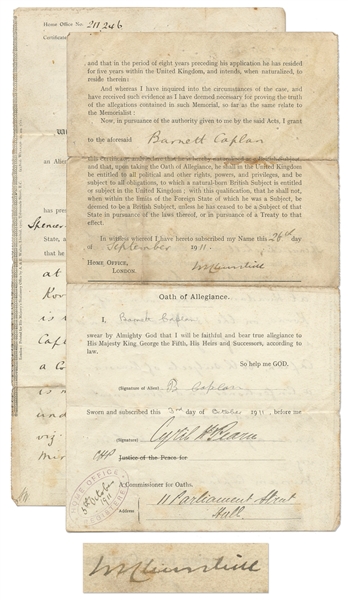 Home Office No. 211,246
Certificate
an Alien
has pres
Spencer
State, a
that he
at
Kov
is
Capl
a Co
is
and
viz
Min
and that in the period of eight years preceding his application he has resided
for five years within the United Kingdom, and intends, when naturalized, to
reside therein:
And whereas I have inquired into the circumstances of the case, and
have received such evidence as I have deemed necessary for proving the truth
of the allegations contained in such Memorial, so far as the same relate to
the Memorialist:
Now, in pursuance of the authority given to me by the said Acts, I grant
to the aforesaid Barnett Caplan
this Certificate, and declare that he is hereby naturalized as a British Subject,
and that, upon taking the Oath of Allegiance, he shall in the United Kingdom
be entitled to all political and other rights, powers, and privileges, and be
subject to all obligations, to which a natural-born British Subject is entitled
or subject in the United Kingdom; with this qualification, that he shall not,
when within the limits of the Foreign State of which he was a Subject, be
deemed to be a British Subject, unless he has ceased to be a Subject of that
State in pursuance of the laws thereof, or in pursuance of a Treaty to that
effect.
In witness whereof I have hereto subscribed my Name this 26th day
of September 1911.
HOME OFFICE,
LONDON.
WSChurchill
Oath of Allegiance.
I, Barnett Caplan
swear by Almighty God that I will be faithful and bear true allegiance to
His Majesty King George the Fifth, His Heirs and Successors, according to
law.
So help me GOD.
(Signature of Alien) B Caplan
Sworn and subscribed this 3rd day of October 1911, before me
(Signature) Cyril
Justice of the Peace for
A Commissioner for Oaths.
Address 11 Parliament Street
Hull
HOME OFFICE
5th October
1911
REGISTERED
WSChurchill